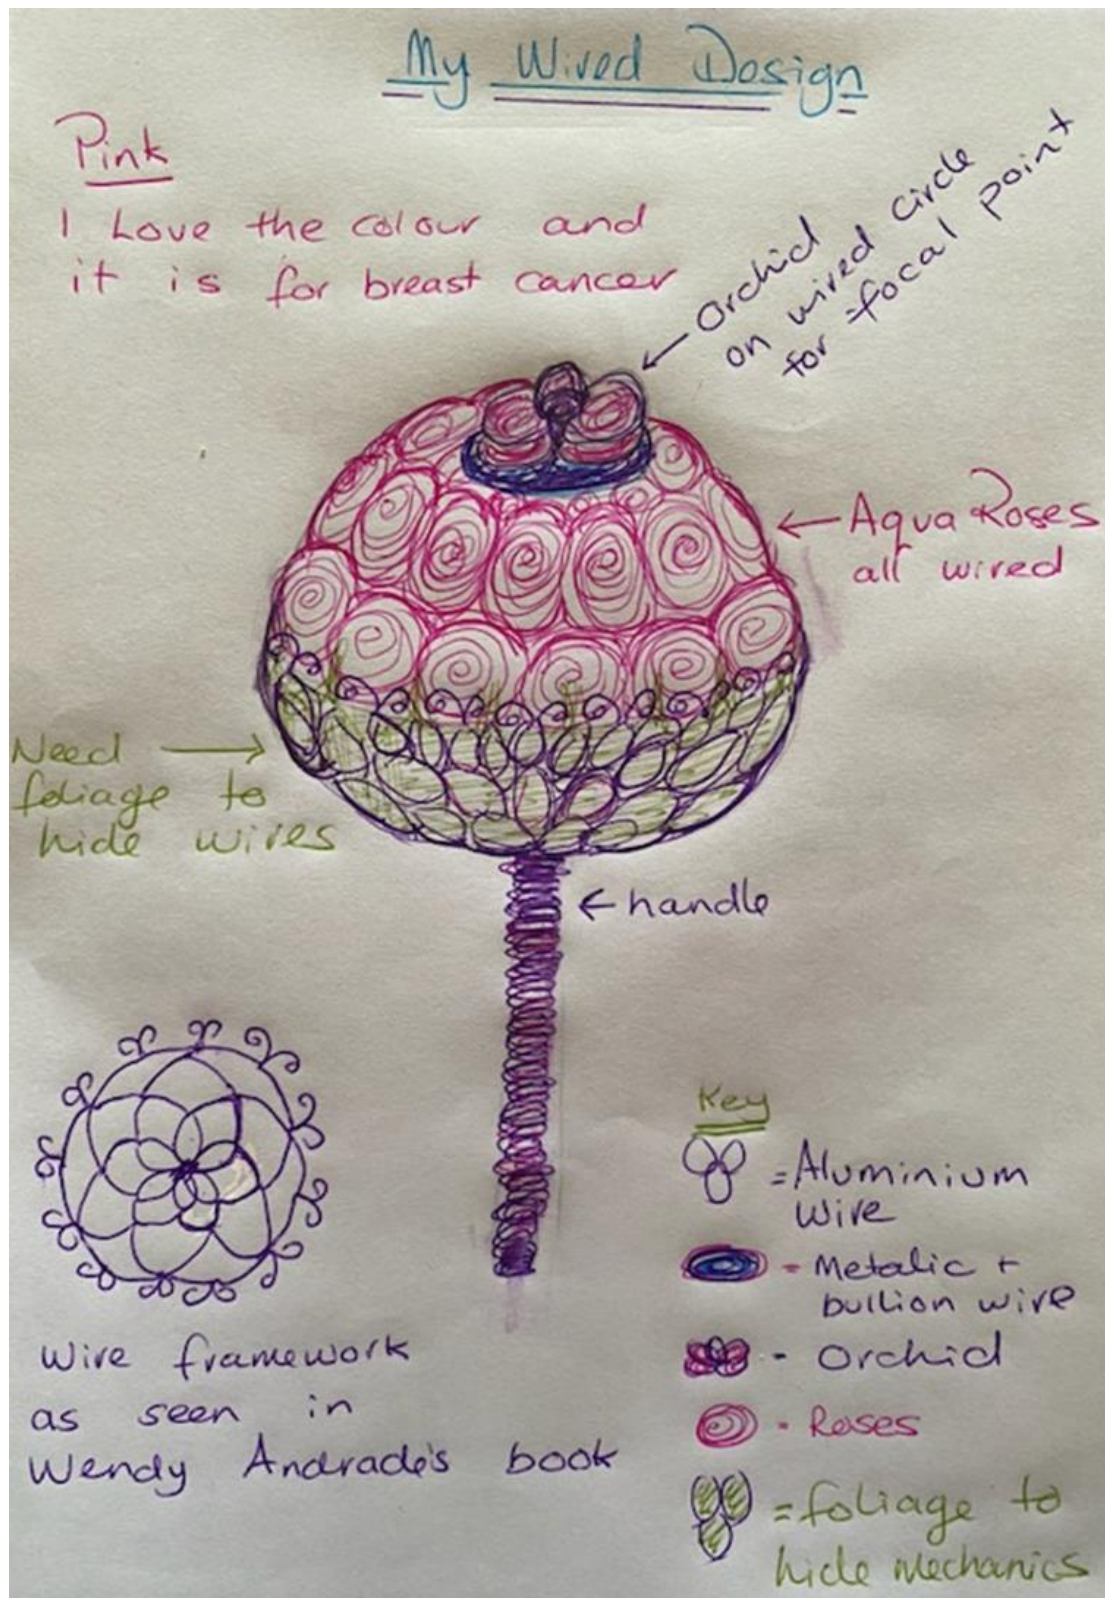 My Wired Design
Pink
I Love the colour and
it is for breast cancer
Orchid
on wired circle
for focal point
Aqua Roses
all wired
Need
foliage to
hide wires
handle
Wire framework
as seen in
Wendy Andrade's book
Key
= Aluminium
Wire
- Metalic +
bullion wire
- Orchid
- Roses
= foliage to
hide Mechanics